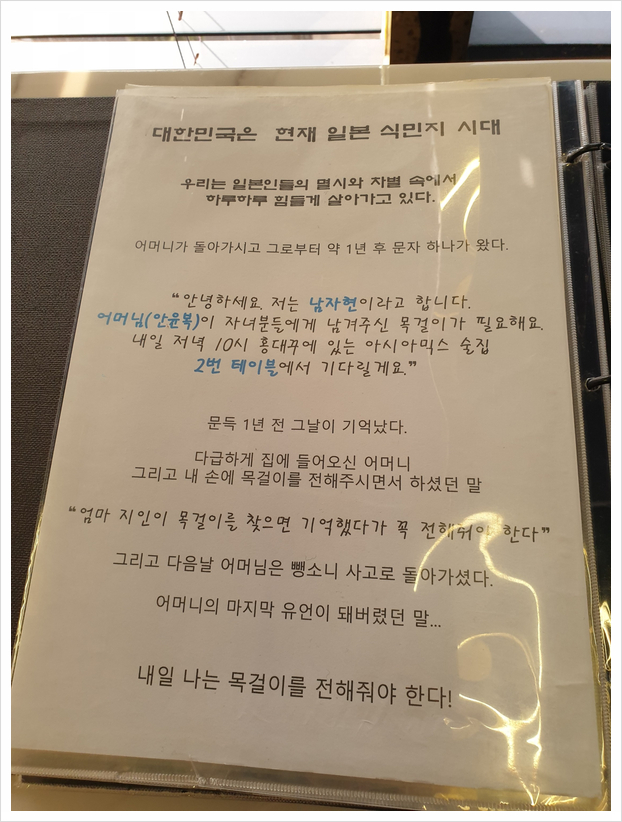 대한민국은 현재 일본 식민지 시대
우리는 일본인들의 멸시와 차별 속에서
하루하루 힘들게 살아가고 있다.
어머니가 돌아가시고 그로부터 약 1년 후 문자 하나가 왔다.
“안녕하세요. 저는 남자현이라고 합니다.
어머님(안윤복)이 자녀분들에게 남겨주신 목걸이가 필요해요.
내일 저녁 10시 홍대꾸에 있는 아시아믹스 술집
2번 테이블에서 기다릴게요.”
문득 1년 전 그날이 기억났다.
다급하게 집에 들어오신 어머니
그리고 내 손에 목걸이를 전해주시면서 하셨던 말
“엄마 지인이 목걸이를 찾으면 기억했다가 꼭 전해줘야 한다”
그리고 다음날 어머님은 뺑소니 사고로 돌아가셨다.
어머니의 마지막 유언이 돼버렸던 말...
내일 나는 목걸이를 전해줘야 한다!